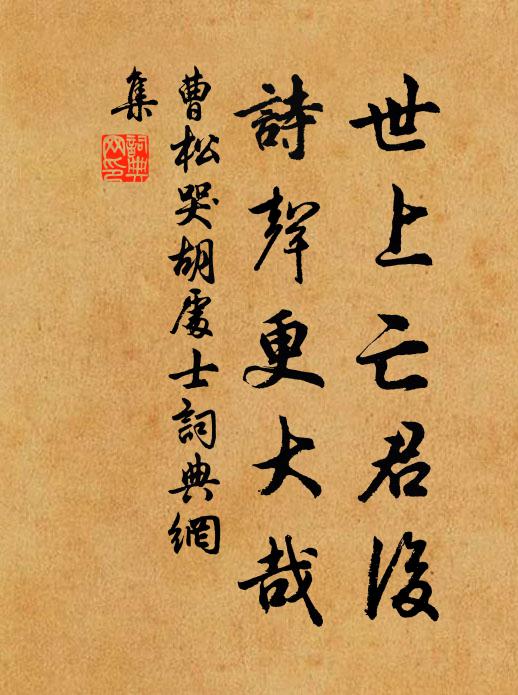 世上亡君後
詩聲更大哉
曹松哭胡處士詞典網
集
詞典網印